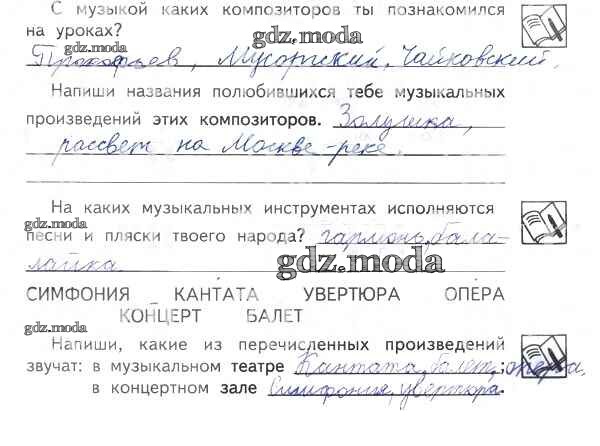 С музыкой каких композиторов ты познакомился
на уроках?
gdz.moda
gdz.moda
Прокофьев, Мусоргский, Чайковский.
Напиши названия полюбившихся тебе музыкальных
произведений этих композиторов. Золушка,
рассвет на Москве-реке.
На каких музыкальных инструментах исполняются
gdz.moda
песни и пляски твоего народа? гармонь, бала-
лайка.
gdz.moda
СИМФОНИЯ КАНТАТА УВЕРТЮРА ОПЕРА
КОНЦЕРТ БАЛЕТ
gdz.moda
Напиши, какие из перечисленных произведений
звучат: в музыкальном театре Кантата, балет, ; опера,
в концертном зале Симфония, увертюра.